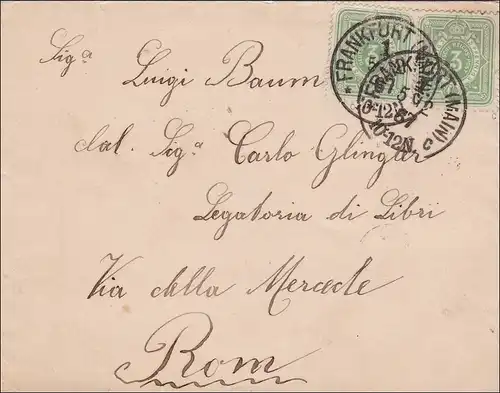 FRANKFURT (MAIN) C
1
5
87
10-12N.
3
3
Sigª
Luigi Baum
dal Sigª Carlo Glingler
Legatoria di Libri
Via della Mercede
Rom